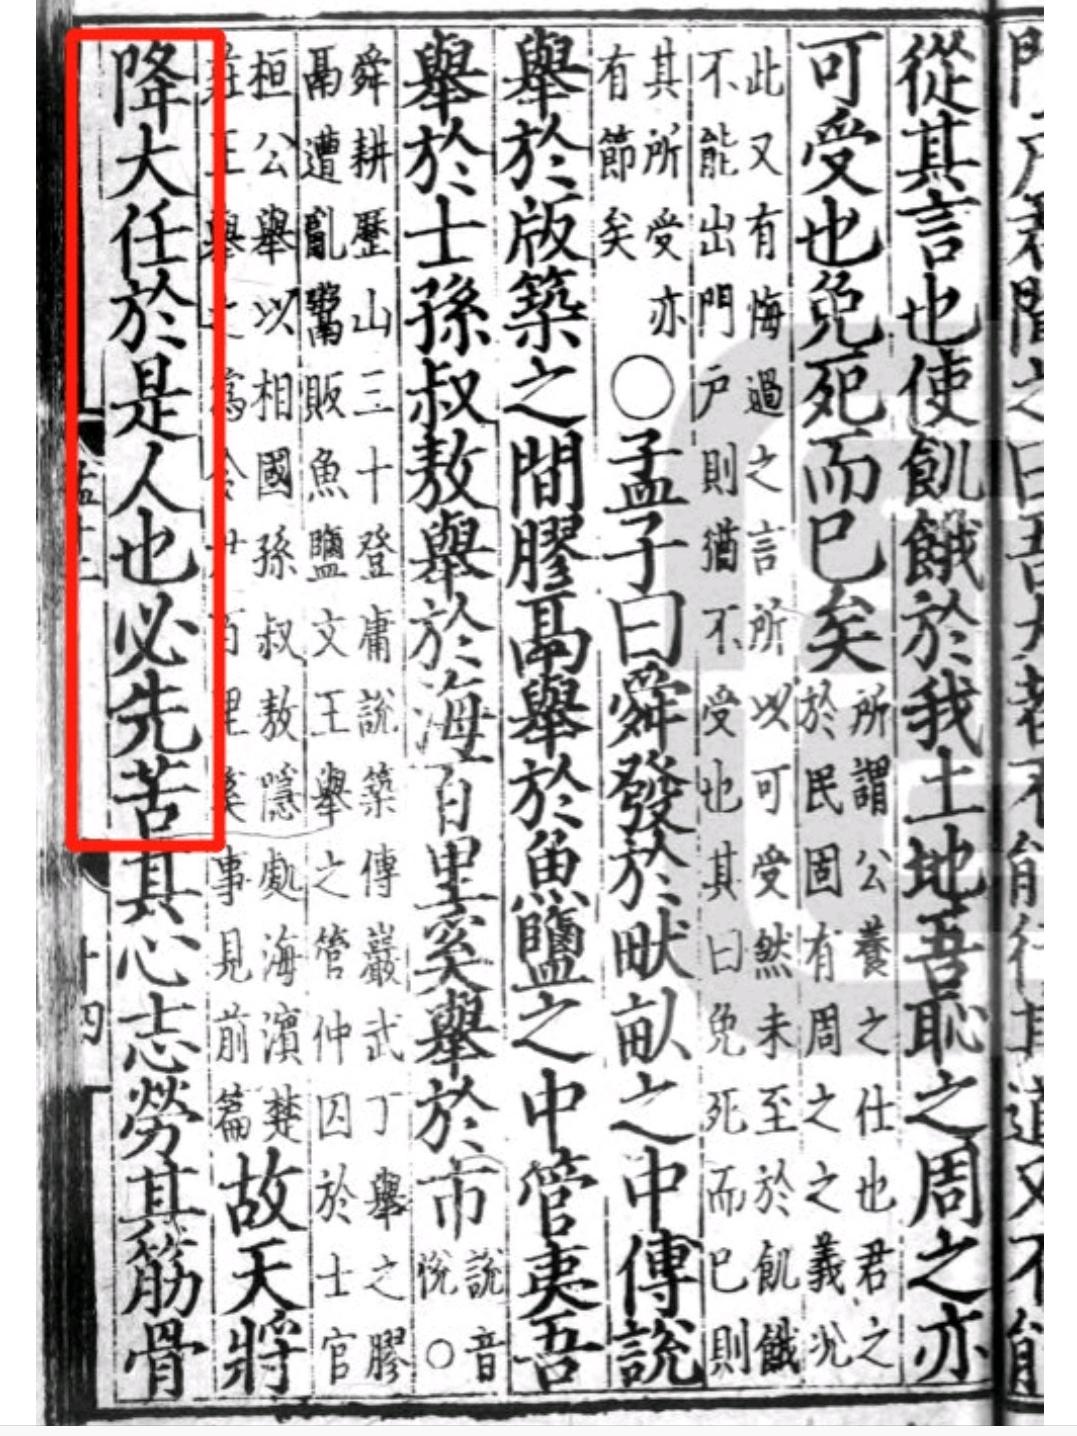 從其言也使飢餓於我土地吾恥之周之亦
可受也免死而已矣
所謂公養之仕也君之
於民固有周之之義況
此又有悔過之言所以可受然未至於飢餓
不能出門戶則猶不受也其曰免死而已則
其所受亦
有節矣
○孟子曰舜發於畎畝之中傅說
舉於版築之閒膠鬲舉於魚鹽之中管夷吾
舉於士孫叔敖舉於海百里奚舉於市
說音
悅○
舜耕歷山三十登庸說築傅巖武丁舉之膠
鬲遭亂鬻販魚鹽文王舉之管仲囚於士官
桓公舉以相國孫叔敖隱處海濱楚
莊王舉之為令尹百里奚事見前篇
故天將
降大任於是人也必先苦其心志勞其筋骨